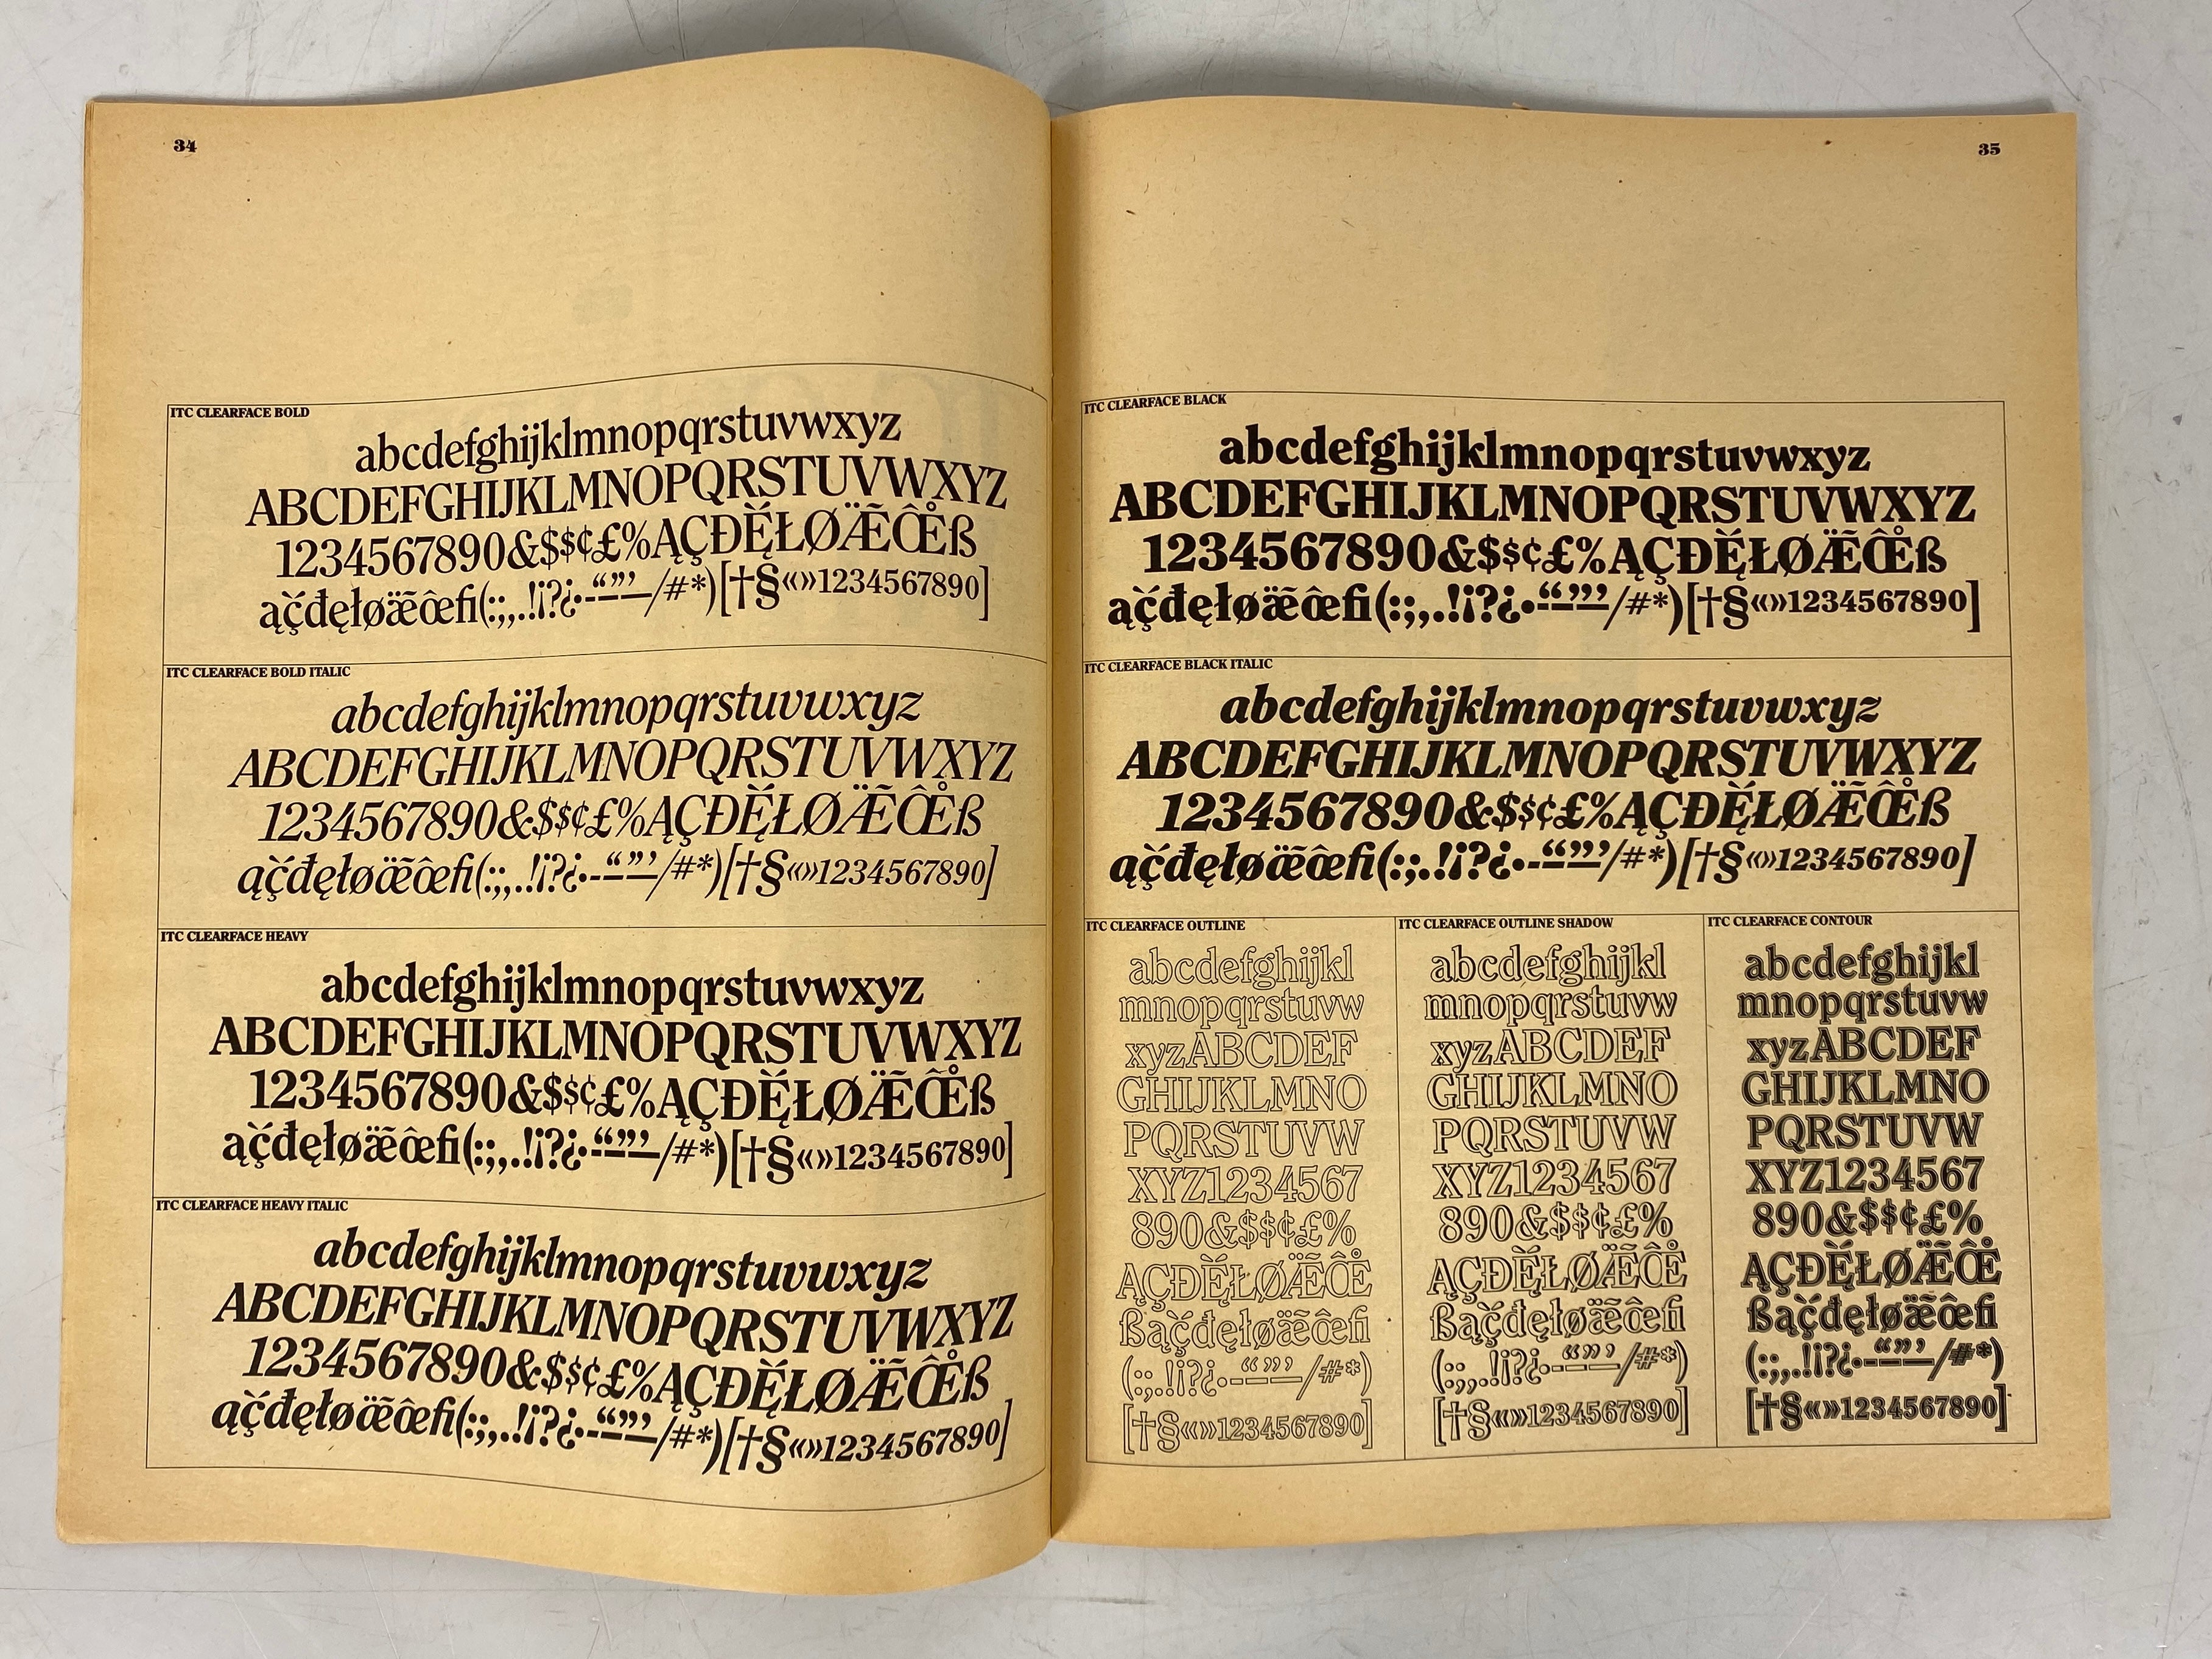 34
ITC CLEARFACE BOLD
abcdefghijklmnopqrstuvwxyz
ABCDEFGHIJKLMNOPQRSTUVWXYZ
1234567890&$$¢£%ĄÇĐĘ̌ŁØÄÆ̃ŒÊ̊ß
ąç̌đęłøäæ̃œ̂fi(:;,.!¡?¿•-“”’—/#*)[†§«»1234567890]
ITC CLEARFACE BOLD ITALIC
abcdefghijklmnopqrstuvwxyz
ABCDEFGHIJKLMNOPQRSTUVWXYZ
1234567890&$$¢£%ĄÇĐĘ̌ŁØÄÆ̃ŒÊ̊ß
ąç̌đęłøäæ̃œ̂fi(:;,.!¡?¿•-“”’—/#*)[†§«»1234567890]
ITC CLEARFACE HEAVY
abcdefghijklmnopqrstuvwxyz
ABCDEFGHIJKLMNOPQRSTUVWXYZ
1234567890&$$¢£%ĄÇĐĘ̌ŁØÄÆ̃ŒÊ̊ß
ąç̌đęłøäæ̃œ̂fi(:;,.!¡?¿•-“”’—/#*)[†§«»1234567890]
ITC CLEARFACE HEAVY ITALIC
abcdefghijklmnopqrstuvwxyz
ABCDEFGHIJKLMNOPQRSTUVWXYZ
1234567890&$$¢£%ĄÇĐĘ̌ŁØÄÆ̃ŒÊ̊ß
ąç̌đęłøäæ̃œ̂fi(:;,.!¡?¿•-“”’—/#*)[†§«»1234567890]
35
ITC CLEARFACE BLACK
abcdefghijklmnopqrstuvwxyz
ABCDEFGHIJKLMNOPQRSTUVWXYZ
1234567890&$$¢£%ĄÇĐĘ̌ŁØÄÆ̃ŒÊ̊ß
ąç̌đęłøäæ̃œ̂fi(:;,.!¡?¿•-“”’—/#*)[†§«»1234567890]
ITC CLEARFACE BLACK ITALIC
abcdefghijklmnopqrstuvwxyz
ABCDEFGHIJKLMNOPQRSTUVWXYZ
1234567890&$$¢£%ĄÇĐĘ̌ŁØÄÆ̃ŒÊ̊ß
ąç̌đęłøäæ̃œ̂fi(:;,.!¡?¿•-“”’—/#*)[†§«»1234567890]
ITC CLEARFACE OUTLINE
abcdefghijkl
mnopqrstuvw
xyzABCDEF
GHIJKLMNO
PQRSTUVW
XYZ1234567
890&$$¢£%
ĄÇĐĘ̌ŁØÄÆ̃ŒÊ̊
ßąç̌đęłøäæ̃œ̂fi
(:;,.!¡?¿•-“”’—/#*)
[†§«»1234567890]
ITC CLEARFACE OUTLINE SHADOW
abcdefghijkl
mnopqrstuvw
xyzABCDEF
GHIJKLMNO
PQRSTUVW
XYZ1234567
890&$$¢£%
ĄÇĐĘ̌ŁØÄÆ̃ŒÊ̊
ßąç̌đęłøäæ̃œ̂fi
(:;,.!¡?¿•-“”’—/#*)
[†§«»1234567890]
ITC CLEARFACE CONTOUR
abcdefghijkl
mnopqrstuvw
xyzABCDEF
GHIJKLMNO
PQRSTUVW
XYZ1234567
890&$$¢£%
ĄÇĐĘ̌ŁØÄÆ̃ŒÊ̊
ßąç̌đęłøäæ̃œ̂fi
(:;,.!¡?¿•-“”’—/#*)
[†§«»1234567890]